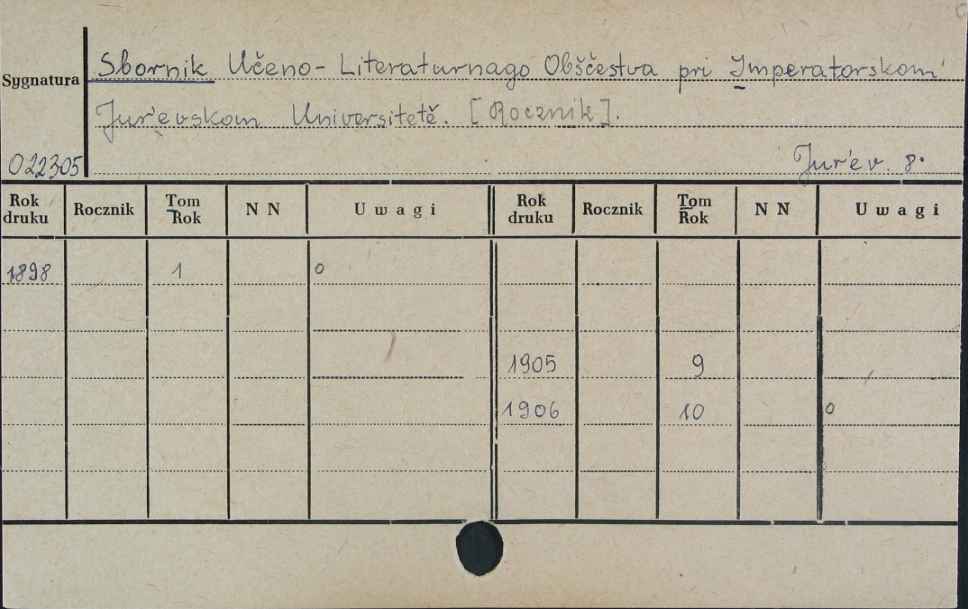 Sygnatura
Sbornik Učeno-Literaturnago Obščestva pri Imperatorskom'
Jur'evskom Universitetě. [Rocznik].
022305
Jur'ev. 8°
Rok druku Rocznik Tom Rok N N Uwagi Rok druku Rocznik Tom Rok N N Uwagi
1898 1 o
1905 9
1906 10 o